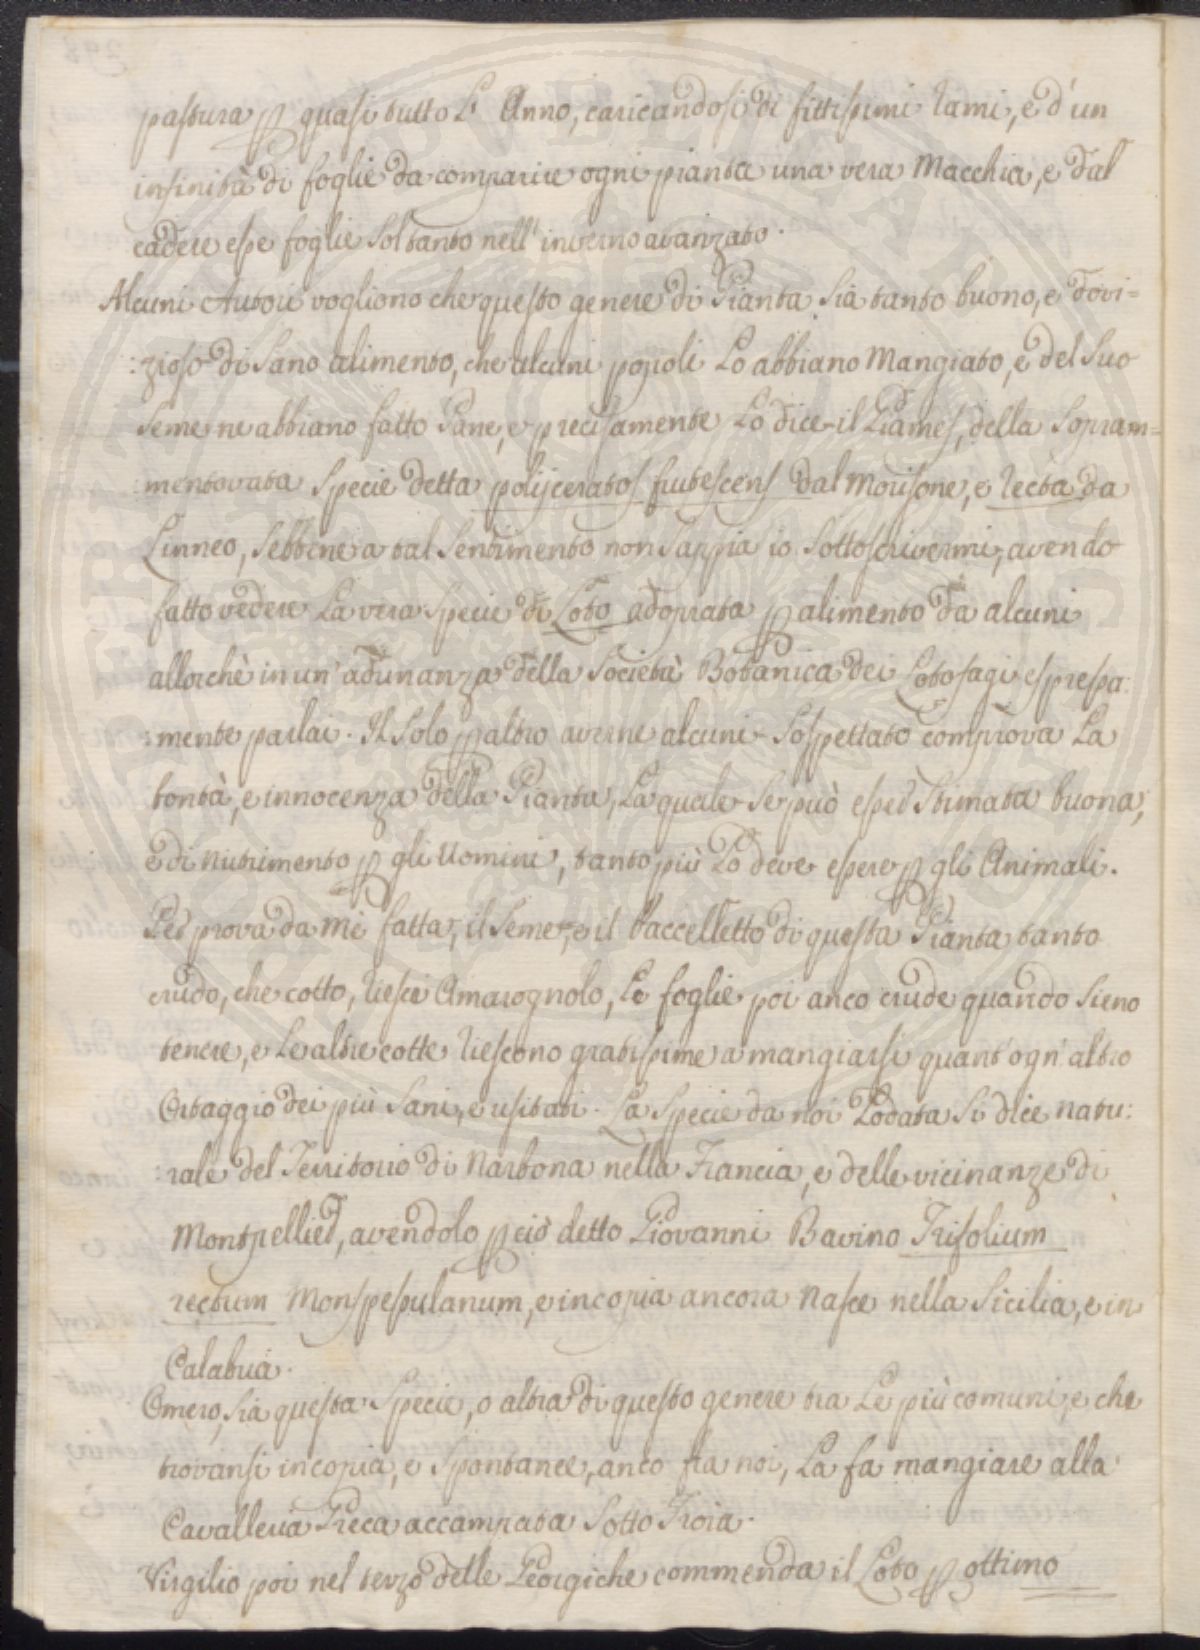 pastura p quasi tutto L' Anno, caricandosi di fittissimi rami, e d'un
infinità di foglie da comparire ogni pianta una vera Macchia, e dal
cadere esse foglie soltanto nell'inverno avanzato.
Alcuni Autori vogliono che questo genere di Pianta sia tanto buono, e dovi=
:zioso di sano alimento, che alcuni popoli Lo abbiano Mangiato, e del suo
seme ne abbiano fatto Pane, e precisamente Lo dice il Giames, della sopram=
:mentovata specie detta polijceratos frutescens dal Morisone, e recta da
Linneo, sebbene a tal sentimento non sappia io sottoscrivermi, avendo
fatto vedere La vera specie di Loto adoprata p alimento da alcuni
allorchè in un'adunanza della Società Botanica dei Lotofagi espressa:
:mente parlai. Il solo p altro averne alcuni sospettato comprova La
bontà, e innocenza della Pianta, La quale se può esser stimata buona,
e di nutrimento p gli Uomini, tanto più Lo deve essere p gli Animali.
Per prova da me fatta, il seme, e il baccelletto di questa Pianta tanto
crudo, che cotto, riesce Amarognolo, Le foglie poi anco crude quando sieno
tenere, e Le altre cotte riescono gratissime a mangiarsi quant'ogn'altro
Ortaggio dei più sani, e usitati. La specie da noi Lodata si dice natu:
:rale del Territorio di Narbona nella Francia, e delle vicinanze di
Montpellier, avendolo p ciò detto Giovanni Bavino Trifolium
rectum Monspessulanum, e in copia ancora Nasce nella Sicilia, e in
Calabria.
Omero, sia questa specie, o altra di questo genere tra Le più comuni, e che
trovansi in copia, e spontanee, anco fra noi, La fa mangiare alla
Cavalleria Greca accampata sotto Troia.
Virgilio poi nel terzo delle Georgiche commenda il Loto p ottimo